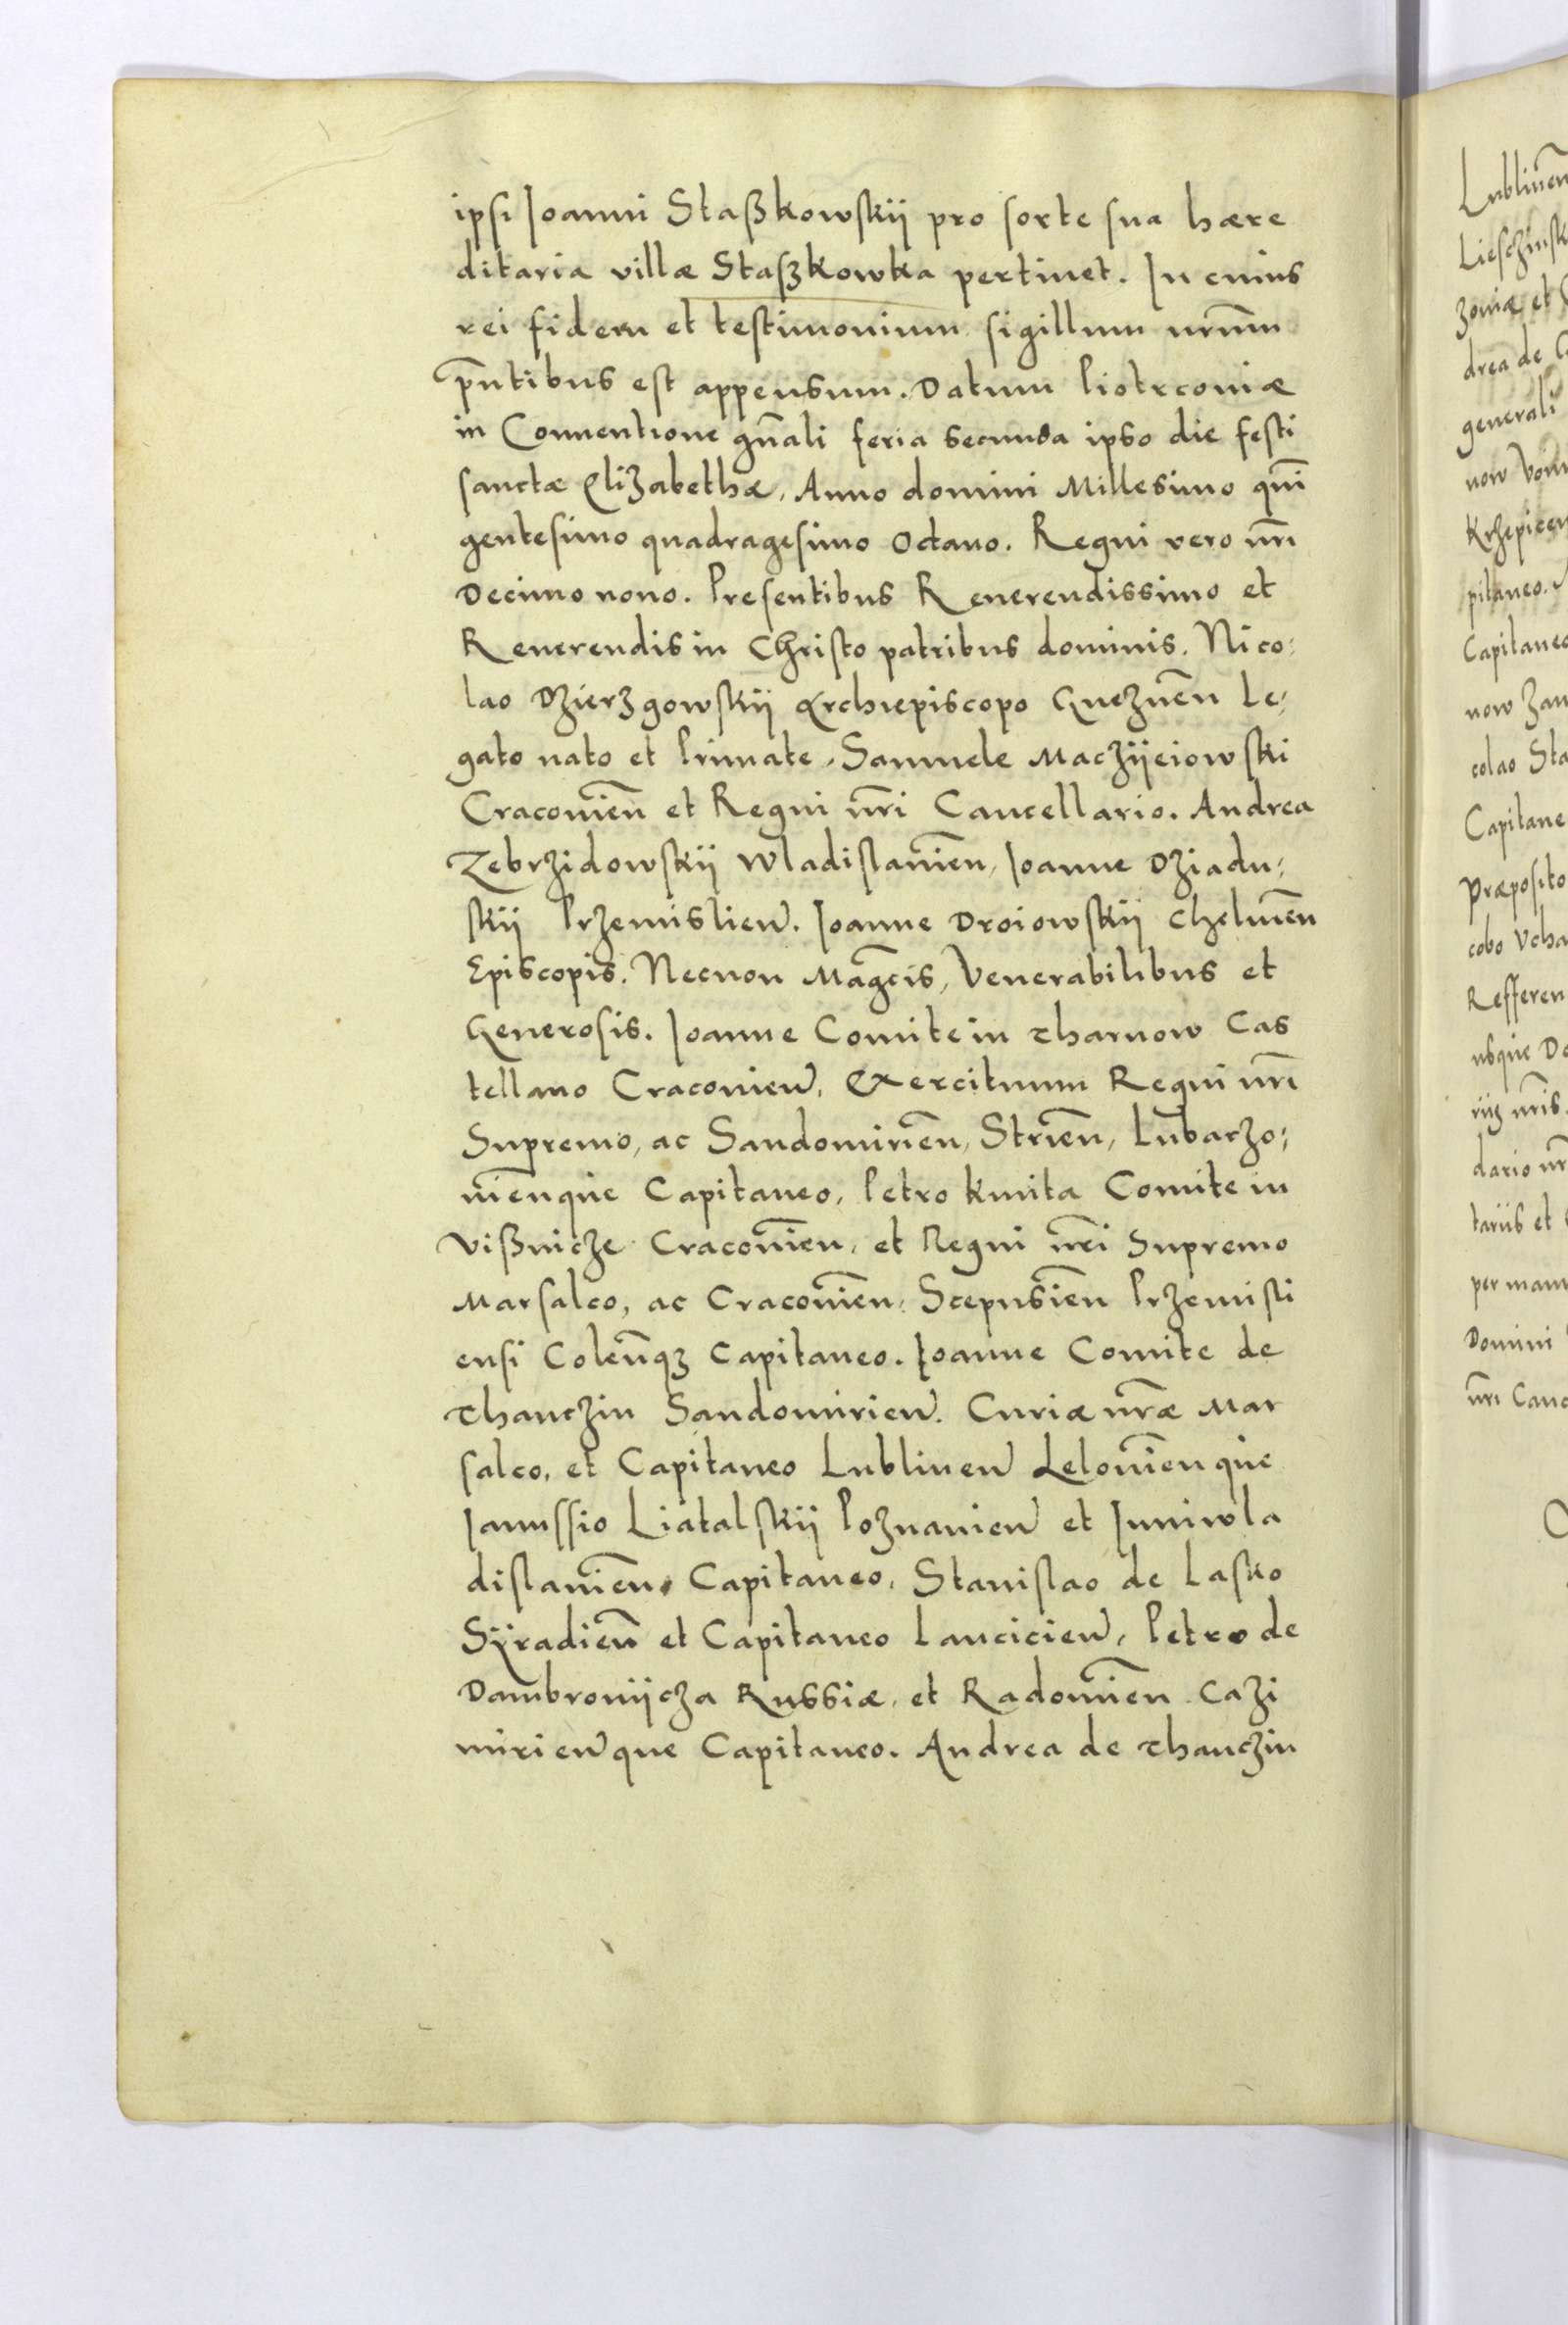 ipsi Joanni Staßkowskij pro sorte sua hære
ditaria villæ Staszkowka pertinet. In cuius
rei fidem et testimonium sigillum nr̃um
p̃ntibus est appensum. Datum Piotrconiæ
in Conuentione gñali feria secunda ipso die festi
sanctæ Elizabethæ, Anno domini Millesimo quĩ
gentesimo quadragesimo octauo. Regni vero nr̃i
Decimo nono. Presentibus Reuerendissimo et
Reuerendis in Christo patribus dominis. Nico:
lao Dzierzgowskij Archiepiscopo Gneznen̄ Le:
gato nato et Primate, Samuele Maczijeiowski
Cracouien̄ et Regni nr̃i Cancellario. Andrea
Zebrzidowskij Wladislauien̄, Joanne Dziadu:
skij Przemislien̄. Joanne Droiowskij Chelmen̄
Episcopis. Necnon Magc̄is, Venerabilibus et
Generosis. Joanne Comite in Tharnow Cas
tellano Cracouien̄, Exercituum Regni nr̃i
Supremo, ac Sandomirien̄, Strien̄, Lubaczo:
uien̄que Capitaneo, Petro Kmita Comite in
Vißnicze Cracouien̄, et Regni nr̃i Supremo
Marsalco, ac Cracouien̄, Scepusien̄ Przemisli
ensi Colen̄qꝫ Capitaneo. Joanne Comite de
Thanczin Sandomirien̄. Curiæ nr̃æ Mar
salco, et Capitaneo Lublinen̄ Lelouien̄que
Janussio Liatalskij Poznanien̄ et Juniwla
dislauien̄, Capitaneo, Stanislao de Lasko
Sÿradien̄ et Capitaneo Lancicien̄, Petro de
Dambrouijcza Russiæ, et Radomien̄ Cazi
mirien̄que Capitaneo. Andrea de Thanczin